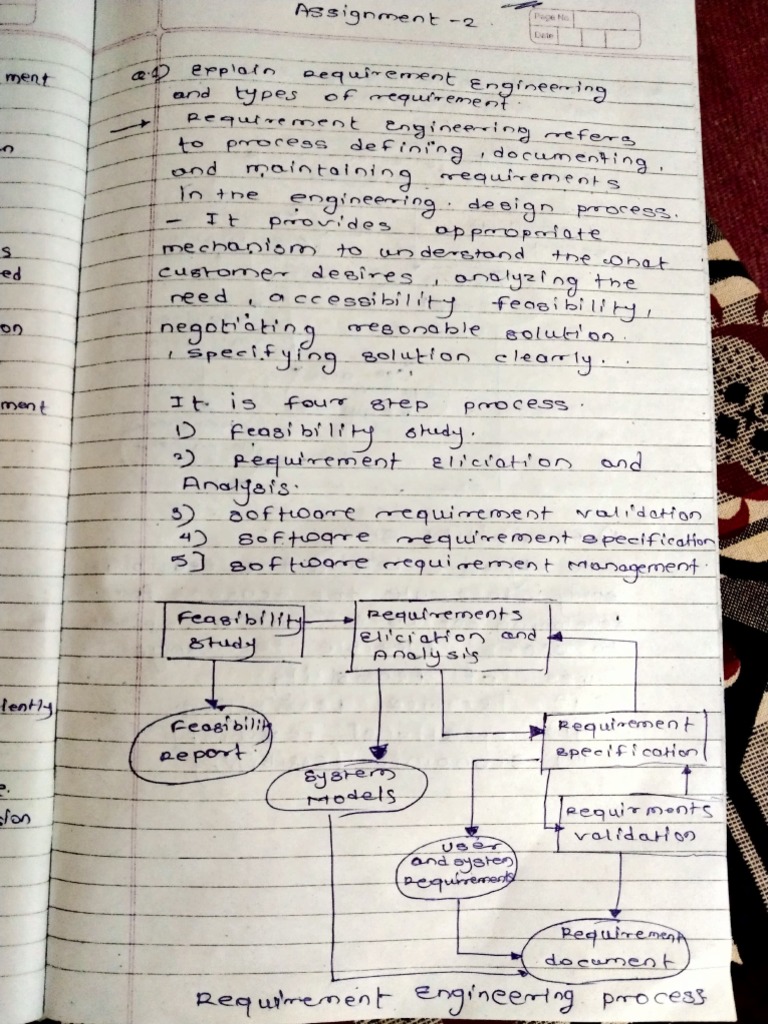 Assignment - 2
Page No.
Date
Q.1) explain requirement Engineering
and types of requirement.
→ Requirement engineering refers
to process defining, documenting,
and maintaining requirements
in the engineering. design process.
- It provides appropriate
mechanism to understand the what
customer desires, analyzing the
need, accessibility feasibility,
negotiating resonable solution.
, specifying solution clearly.
It is four step process.
1) feasibility study.
2) Requirement Eliciation and
Analysis.
3) software requirement validation
4) software requirement specification
5] software requirement Management.
Feasibility
study
Requirements
Eliciation and
Analysis
Feasibilit
Report
Requirement
specification
System
Models
Requirments
validation
User
and system
Requirements
Requirement
document
Requirement Engineering process
ment
n
s
ed
on
ment
dently
e.
sion